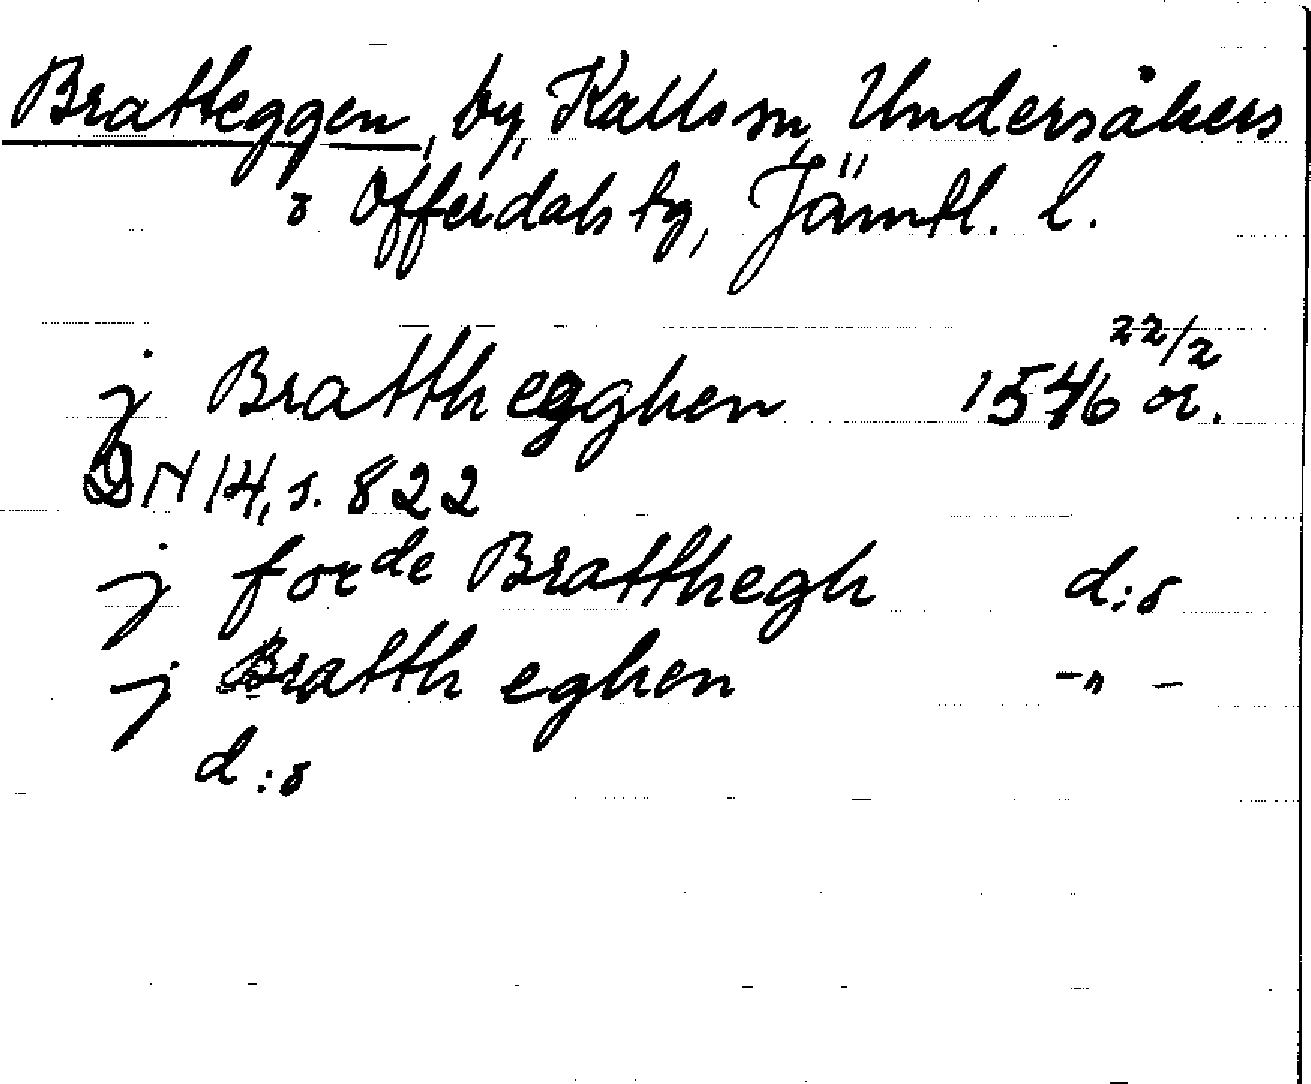 Bratteggen, by, Kalls sn, Undersåkers
o Offerdals tg, Jämtl. l.
j Bratth egghen 1546 22/2 or.
DN 14, s. 822
j forde Bratthegh d:o
j Bratth eghen -"-
d:o